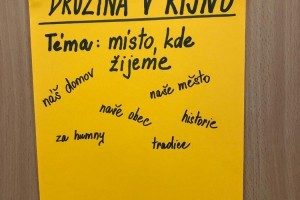 DRUŽINA V ŘÍJNU
Téma: místo, kde
žijeme
náš domov
naše město
naše obec
historie
za humny
tradice